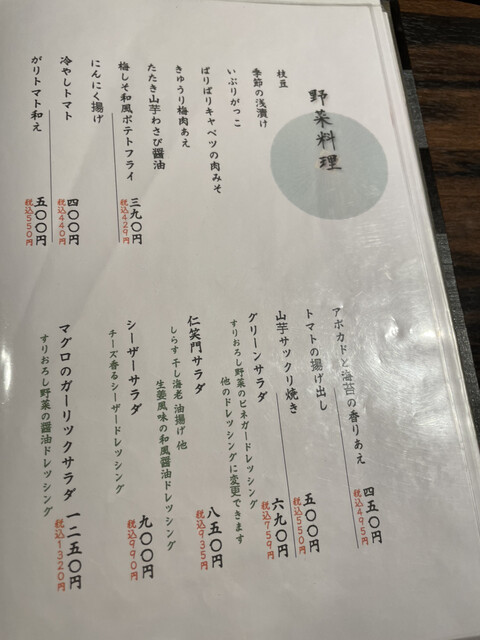 野菜料理
枝豆
季節の浅漬け
いぶりがっこ
ばりばりキャベツの肉みそ
きゅうり梅肉あえ
たたき山芋わさび醤油
梅しそ和風ポテトフライ
三九〇円
税込429円
にんにく揚げ
冷やしトマト
四〇〇円
税込440円
がりトマト和え
五〇〇円
税込550円
アボカドと海苔の香りあえ
四五〇円
税込495円
トマトの揚げ出し
五〇〇円
税込550円
山芋サックリ焼き
六九〇円
税込759円
グリーンサラダ
すりおろし野菜のビネガードレッシング
他のドレッシングに変更できます
八五〇円
税込935円
仁笑門サラダ
しらす干し海老 油揚げ 他
生姜風味の和風醤油ドレッシング
シーザーサラダ
チーズ香るシーザードレッシング
九〇〇円
税込990円
マグロのガーリックサラダ
一二五〇円
税込1320円
すりおろし野菜の醤油ドレッシング